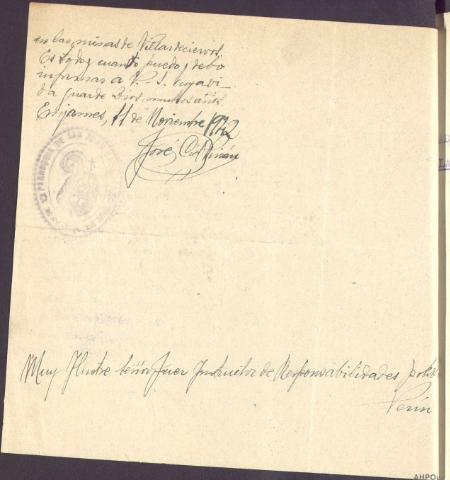 en las minas de Villardeciervos.
Es todo cuanto puedo y debo
informar a V. S. cuya vi-
da guarde Dios muchos años
11 de Noviembre 1942
José
PARROQUIA DE SAN
Muy Ilustre Señor Juez Instructor de Responsabilidades
AHPO